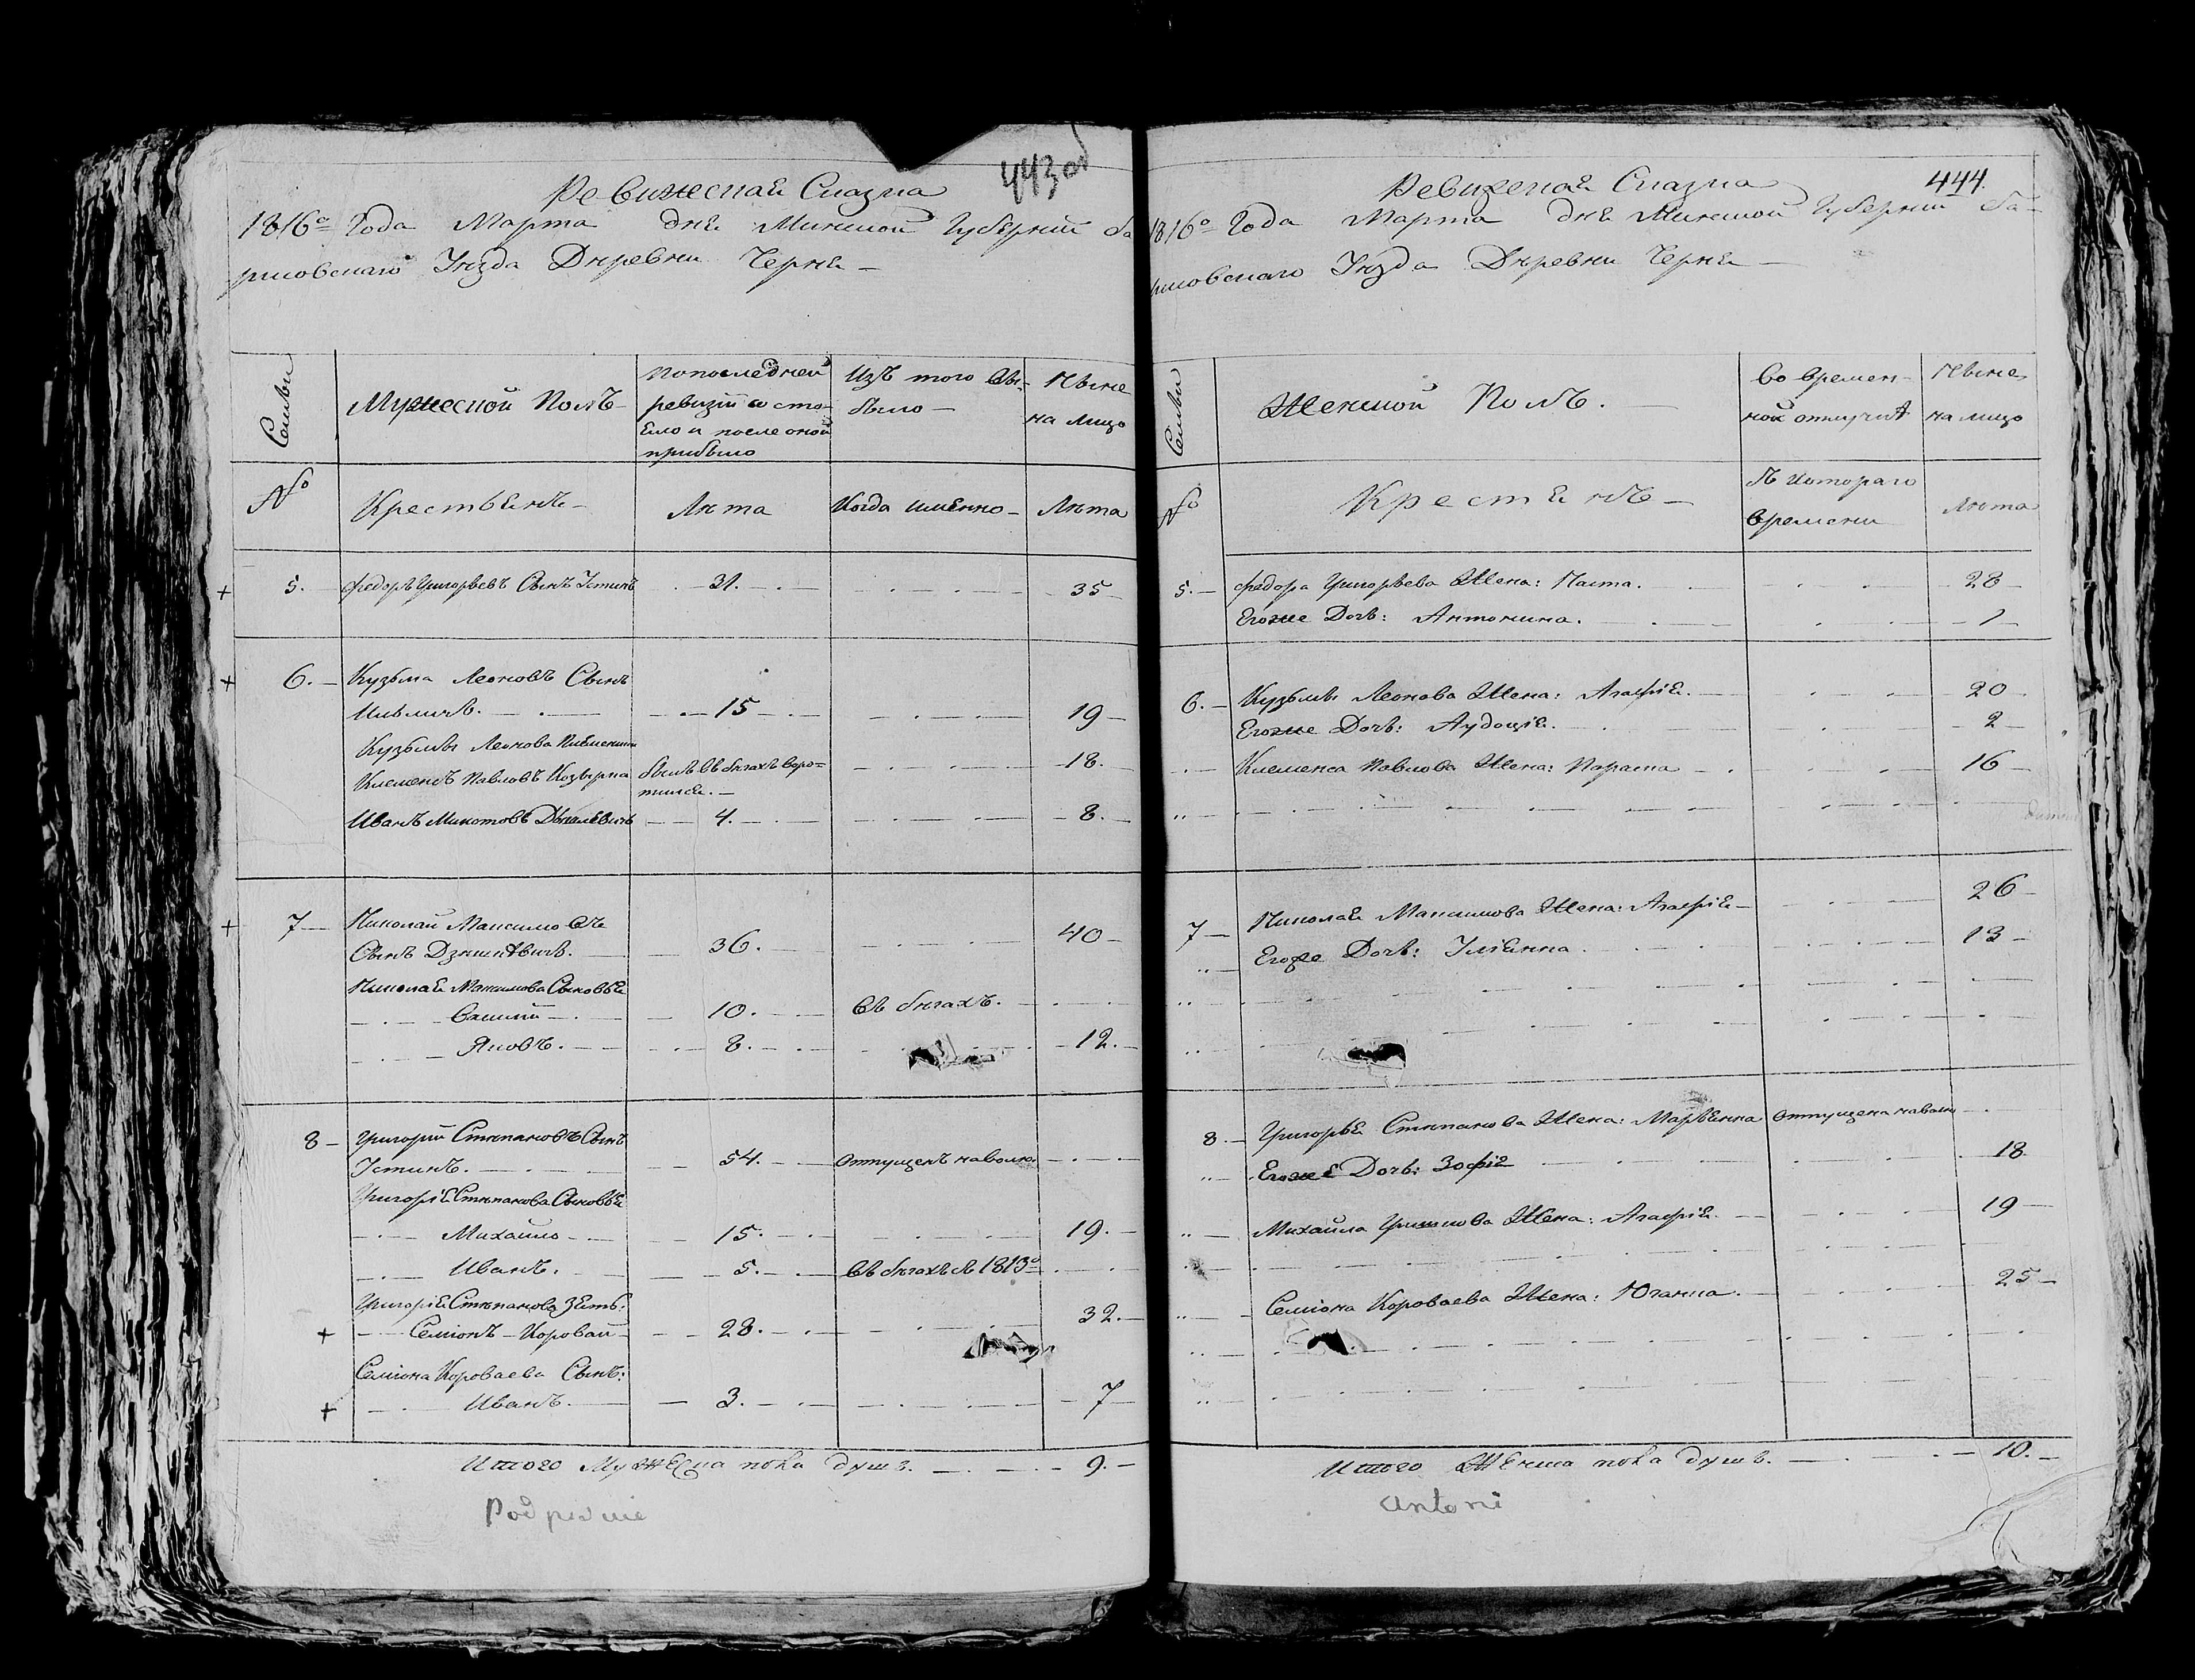 443 об
Ревижеская Сказка
1816го Года Марта дня Минской Губернии Бо
рисовскаго Уезда Дѣревни Черня —
Семьи
Мужеской Полъ
По последней
ревизіи состо-
яло и после оной
прибыло
Изъ того вы-
было —
Ныне
на лицо
№
Крестьянъ —
Лѣта
Когда имянно —
Лѣта
5. Федоръ Григорьевъ Сынъ Устинъ 31. 35
6. Кузьма Леоновъ Сынъ
15 19
Кузьмы Леонова
Клеменсъ Павловъ былъ въ бѣгахъ воро= 18.
тился. —
Иванъ 4. 8.
7 Николай Максимовъ
Сынъ 36. 40
Николая Максимова Сыновья
10. Въ бѣгахъ.
Яковъ. 8. 12.
8 Григорий Стѣпановъ Сынъ
Устинъ. 54. Отпущенъ наволю
Григорія Стѣпанова Сыновья
Михайло 15. 19.
Иванъ. 5. Въ бѣгахъ съ 1813го
Григорія Стѣпанова Зять:
Семіонъ Коровай 28. 32.
Семіона Короваева Сынъ:
Иванъ. 3. 7
Итого Мужеска пола душъ. 9.
444.
Ревижеская Сказка
1816го Года Марта дня Минской Губернии Бо-
рисовскаго Уѣзда Дѣревни Черня —
Семьи
Женской Полъ.
Во времен-
ной отлучкѣ
Ныне
на лицо
№
Крестянъ —
Съ Котораго
времени
Лѣта
5. Федора Григорьева Жена: Наста. 28
Егоже Дочь: Антонина. 1
6. Кузьмы Леонова Жена: Агафія. 20
Егоже Дочь: Аудоція. 2
Клеменса Павлова Жена: Параска 16
7 Николая Максимова Жена: Агафія 26
Егоже Дочь: Уліянна 13
8. Григорья Стѣпанова Жена: Марьянна Отпущена наволю
Егоже Дочь: Зофія 18
Михайла Григорова Жена: Агафія. 19
Семіона Короваева Жена: Юганна. 25
Итого Женска пола душъ. 10.
Antoni